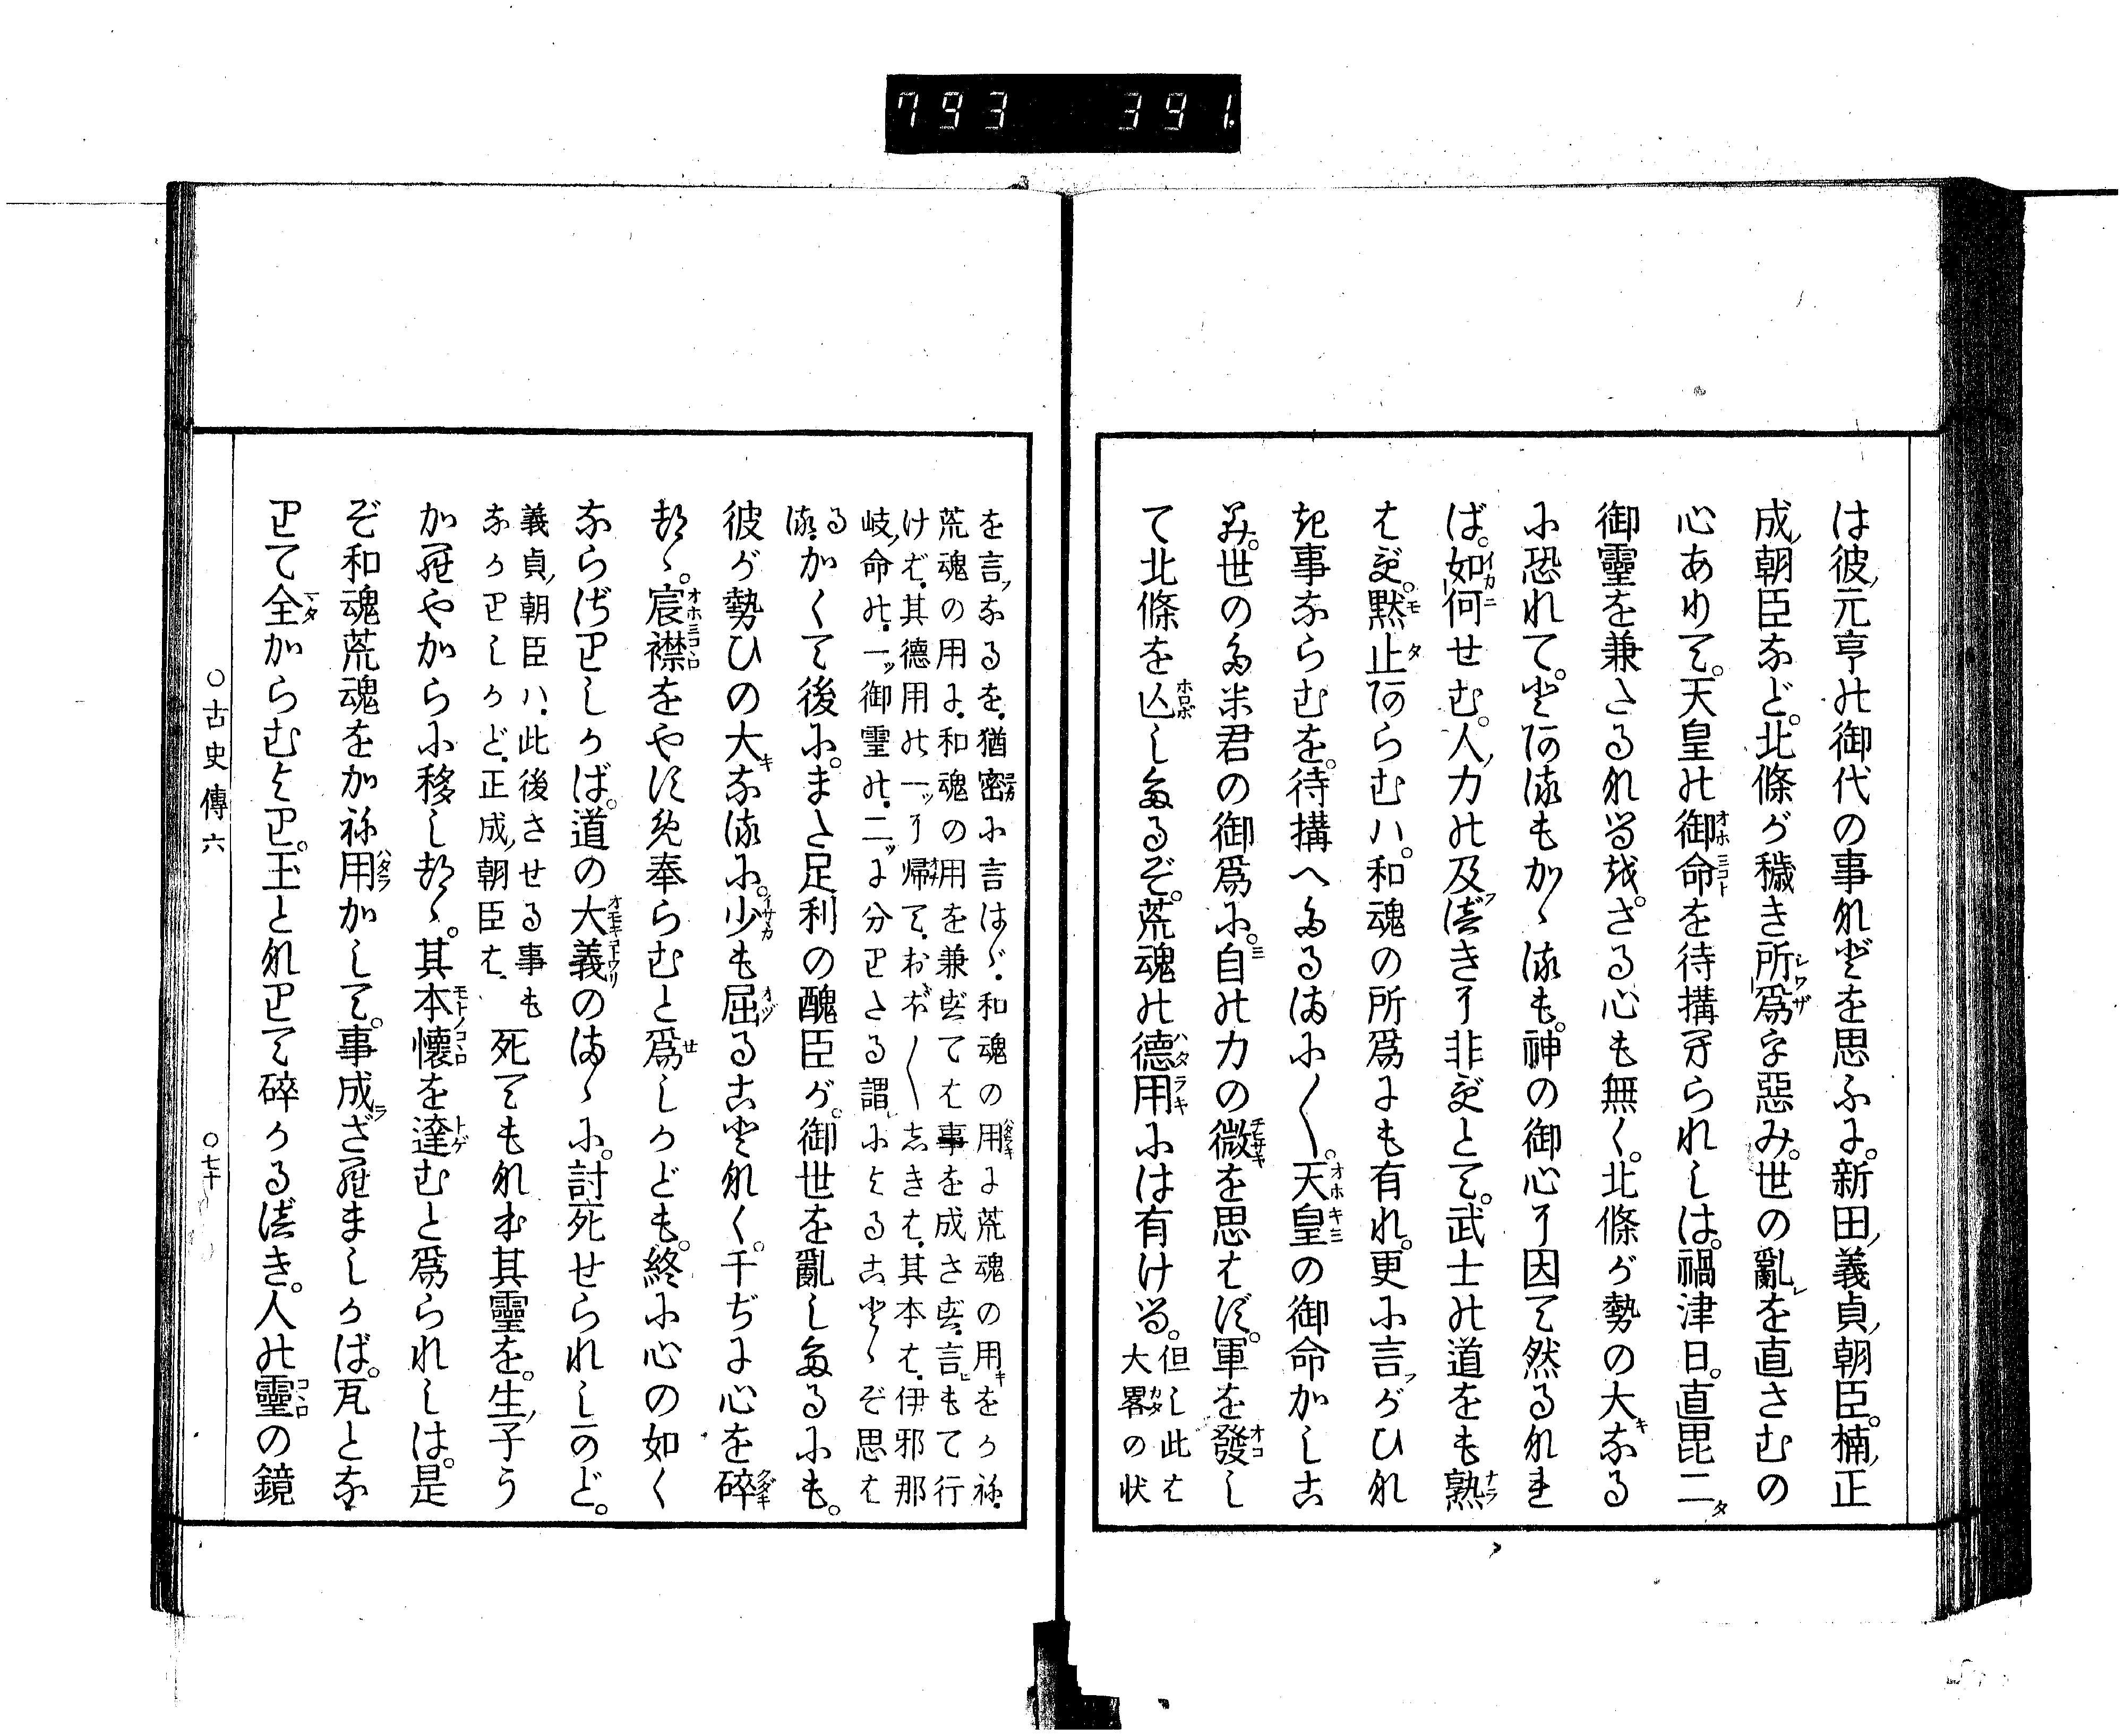 793 391
は彼ノ元亨の御代の事などを思ふに。新田ノ義貞ノ朝臣。楠ノ正
成ノ朝臣など。北條が穢き所爲を惡み。世の亂レを直さむの
心ありて。天皇の御命を待構へられしは。禍津日。直毘二タ
御靈を兼たるなるを。さる心も無く。北條が勢の大キなる
に恐れて。とあるもかゝるも。神の御心に因て然るなれ
ば。如何せむ。人ノ力の及ブべきに非ずとて。武士の道をも熟
はず。黙止あらむハ。和魂の所爲にも有れ。更に言フがひな
き事ならむを。待構へたるまに〱。天皇の御命かしこ
み。世のため君の御爲に。自の力の微を思はず。軍を發し
て北條を亾したるぞ。荒魂の德用には有ける。但し此は
大畧の状
を言フなるを。猶密に言はゞ。和魂の用に荒魂の用キをかね。
荒魂の用に。和魂の用を兼ずては事を成さず。言ヒもて行
けば。其德用の一ツに帰て。おぼ〱しきは。其本は。伊邪那
岐ノ命の。一ツ御靈の。二ツに分りたる謂によることゝぞ思は
るる。かくて後に。また足利の醜臣が。御世を亂したるにも。
彼が勢ひの大キなるに。少も屈ることなく。千ぢに心を碎
きつゝ。宸襟をやすめ奉らむと爲しかども。終に心の如く
ならざりしかば。道の大義のまゝに。討死せられしのど。
義貞ノ朝臣ハ。此後させる事も
なかりしかど。正成ノ朝臣は。死てもなお其靈を。生ノ子う
からやからに移しつゝ。其本懷を達むと爲られしは。是
ぞ和魂荒魂をかね用かして。事成ラざらましかば。瓦とな
りて全からむより。玉となりて碎かるべき。人の靈の鏡
○古史傳六
○七十